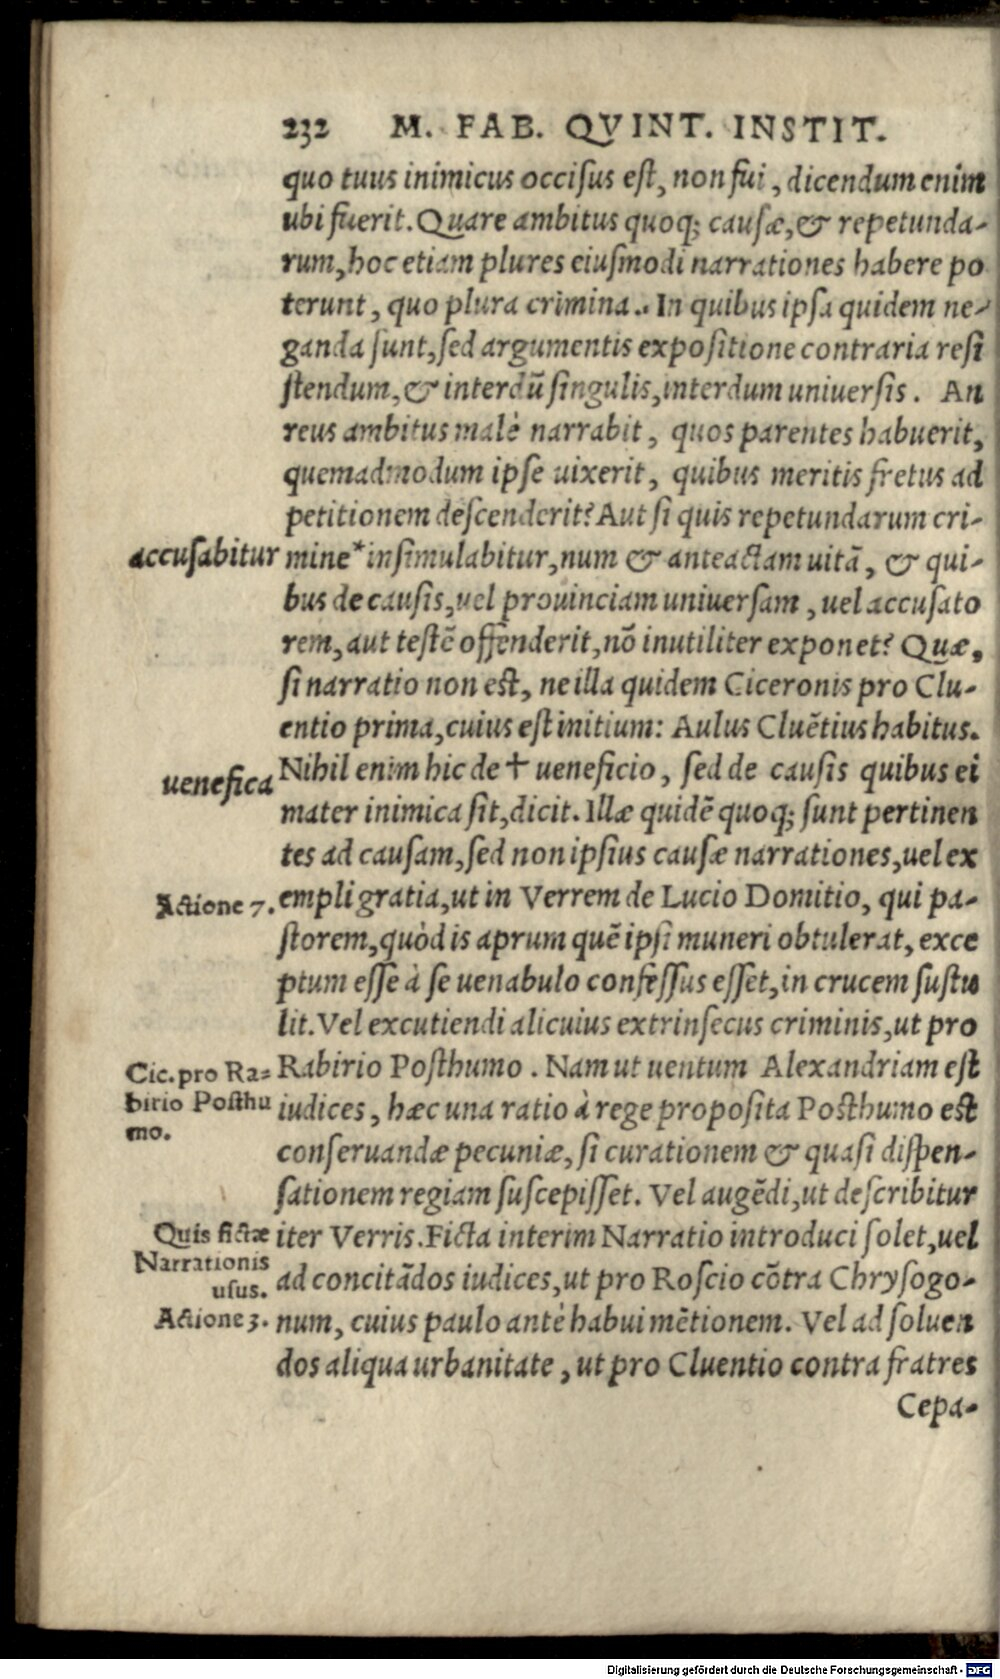 232 M. FAB. QVINT. INSTIT.
quo tuus inimicus occiſus eſt, non fui, dicendum enim
ubi fuerit. Quare ambitus quoq; cauſæ, & repetunda-
rum, hoc etiam plures eiuſmodi narrationes habere po
terunt, quo plura crimina.. In quibus ipſa quidem ne-
ganda ſunt, ſed argumentis expoſitione contraria reſi
ſtendum, & interdū ſingulis, interdum uniuerſis. An
reus ambitus malè narrabit, quos parentes habuerit,
quemadmodum ipſe uixerit, quibus meritis fretus ad
petitionem deſcenderit? Aut ſi quis repetundarum cri-
accuſabitur
mine* inſimulabitur, num & anteactam uitā, & qui-
bus de cauſis, uel prouinciam uniuerſam, uel accuſato
rem, aut teſtē offenderit, nō inutiliter exponet? Quæ,
ſi narratio non eſt, ne illa quidem Ciceronis pro Clu-
entio prima, cuius eſt initium: Aulus Cluētius habitus.
uenefica
Nihil enim hic de † ueneficio, ſed de cauſis quibus ei
mater inimica ſit, dicit. Illæ quidē quoq; ſunt pertinen
tes ad cauſam, ſed non ipſius cauſæ narrationes, uel ex
Actione 7.
empli gratia, ut in Verrem de Lucio Domitio, qui pa-
ſtorem, quòd is aprum quē ipſi muneri obtulerat, exce
ptum eſſe à ſe uenabulo confeſſus eſſet, in crucem ſuſtu
lit. Vel excutiendi alicuius extrinſecus criminis, ut pro
Cic. pro Ra-
birio Poſthu
mo.
Rabirio Poſthumo. Nam ut uentum Alexandriam eſt
iudices, hæc una ratio à rege propoſita Poſthumo eſt
conſeruandæ pecuniæ, ſi curationem & quaſi diſpen-
ſationem regiam ſuſcepiſſet. Vel augēdi, ut deſcribitur
Quis fictæ
Narrationis
uſus.
iter Verris. Ficta interim Narratio introduci ſolet, uel
ad concitādos iudices, ut pro Roſcio cōtra Chryſogo-
Actione 3.
num, cuius paulo antè habui mētionem. Vel ad ſoluen
dos aliqua urbanitate, ut pro Cluentio contra fratres
Cepa-
Digitalisierung gefördert durch die Deutsche Forschungsgemeinschaft - DFG